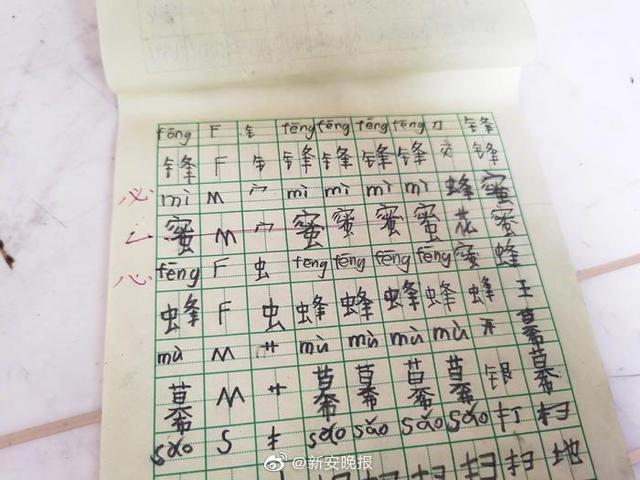 fēng F 钅 fēng fēng fēng fēng 刀 锋
锋 F 钅 锋 锋 锋 锋 交 锋
必 mì M 宀 mì mì mì mì 蜂 蜜
蜜 M 宀 蜜 蜜 蜜 蜜 花 蜜
心 fēng F 虫 fēng fēng fēng fēng 蜜 蜂
蜂 F 虫 蜂 蜂 蜂 蜂 蜂 王
mù M 艹 mù mù mù mù 开 幕
幕 M 艹 幕 幕 幕 幕 银 幕
sǎo S 扌 sǎo sǎo sǎo sǎo 打 扫
扫 扫 地
@新安晚报